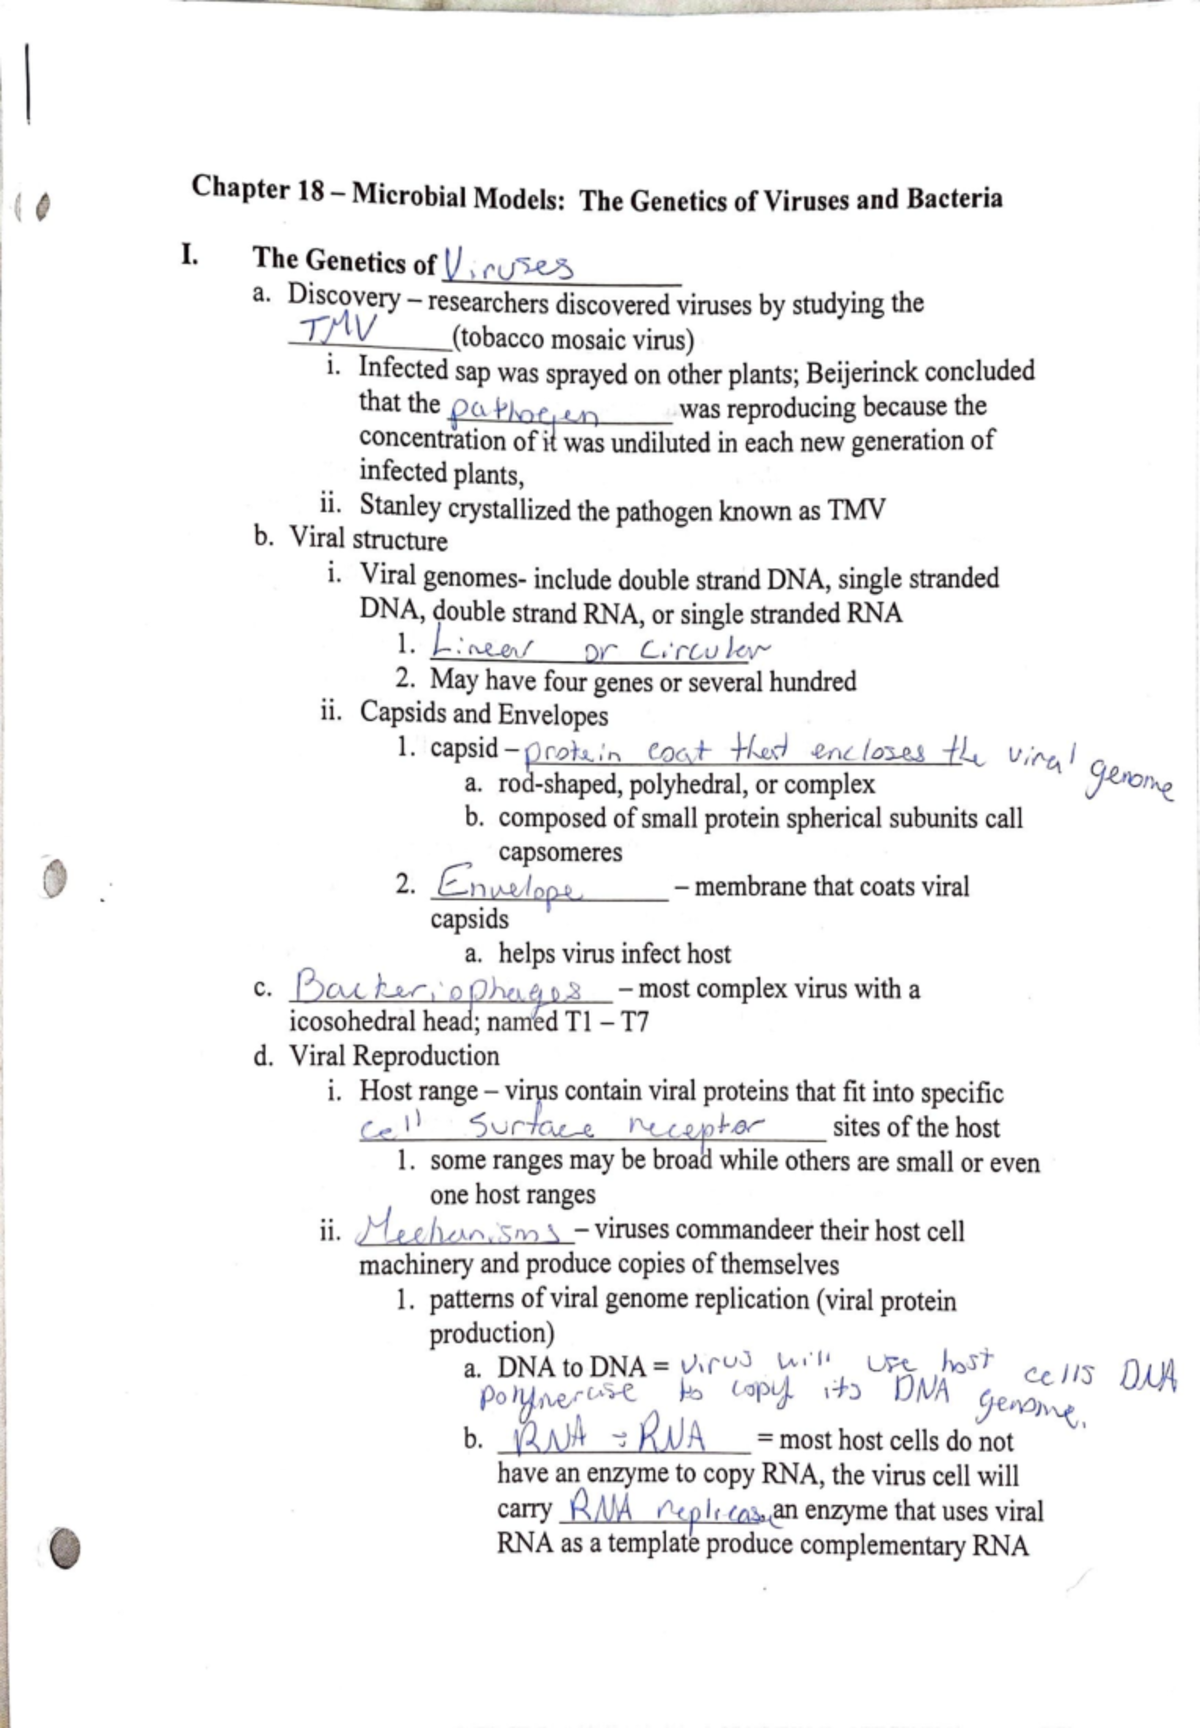 Chapter 18 – Microbial Models: The Genetics of Viruses and Bacteria
I. The Genetics of Viruses
a. Discovery – researchers discovered viruses by studying the
TMV (tobacco mosaic virus)
i. Infected sap was sprayed on other plants; Beijerinck concluded
that the pathogen was reproducing because the
concentration of it was undiluted in each new generation of
infected plants,
ii. Stanley crystallized the pathogen known as TMV
b. Viral structure
i. Viral genomes- include double strand DNA, single stranded
DNA, double strand RNA, or single stranded RNA
1. Linear or Circular
2. May have four genes or several hundred
ii. Capsids and Envelopes
1. capsid – protein coat that encloses the viral genome
a. rod-shaped, polyhedral, or complex
b. composed of small protein spherical subunits call
capsomeres
2. Envelope – membrane that coats viral
capsids
a. helps virus infect host
c. Bacteriophages – most complex virus with a
icosohedral head; named T1 – T7
d. Viral Reproduction
i. Host range – virus contain viral proteins that fit into specific
cell surface receptor sites of the host
1. some ranges may be broad while others are small or even
one host ranges
ii. Mechanisms – viruses commandeer their host cell
machinery and produce copies of themselves
1. patterns of viral genome replication (viral protein
production)
a. DNA to DNA = virus will use host cells DNA
polymerase to copy its DNA genome.
b. RNA = RNA = most host cells do not
have an enzyme to copy RNA, the virus cell will
carry RNA replicase, an enzyme that uses viral
RNA as a template produce complementary RNA